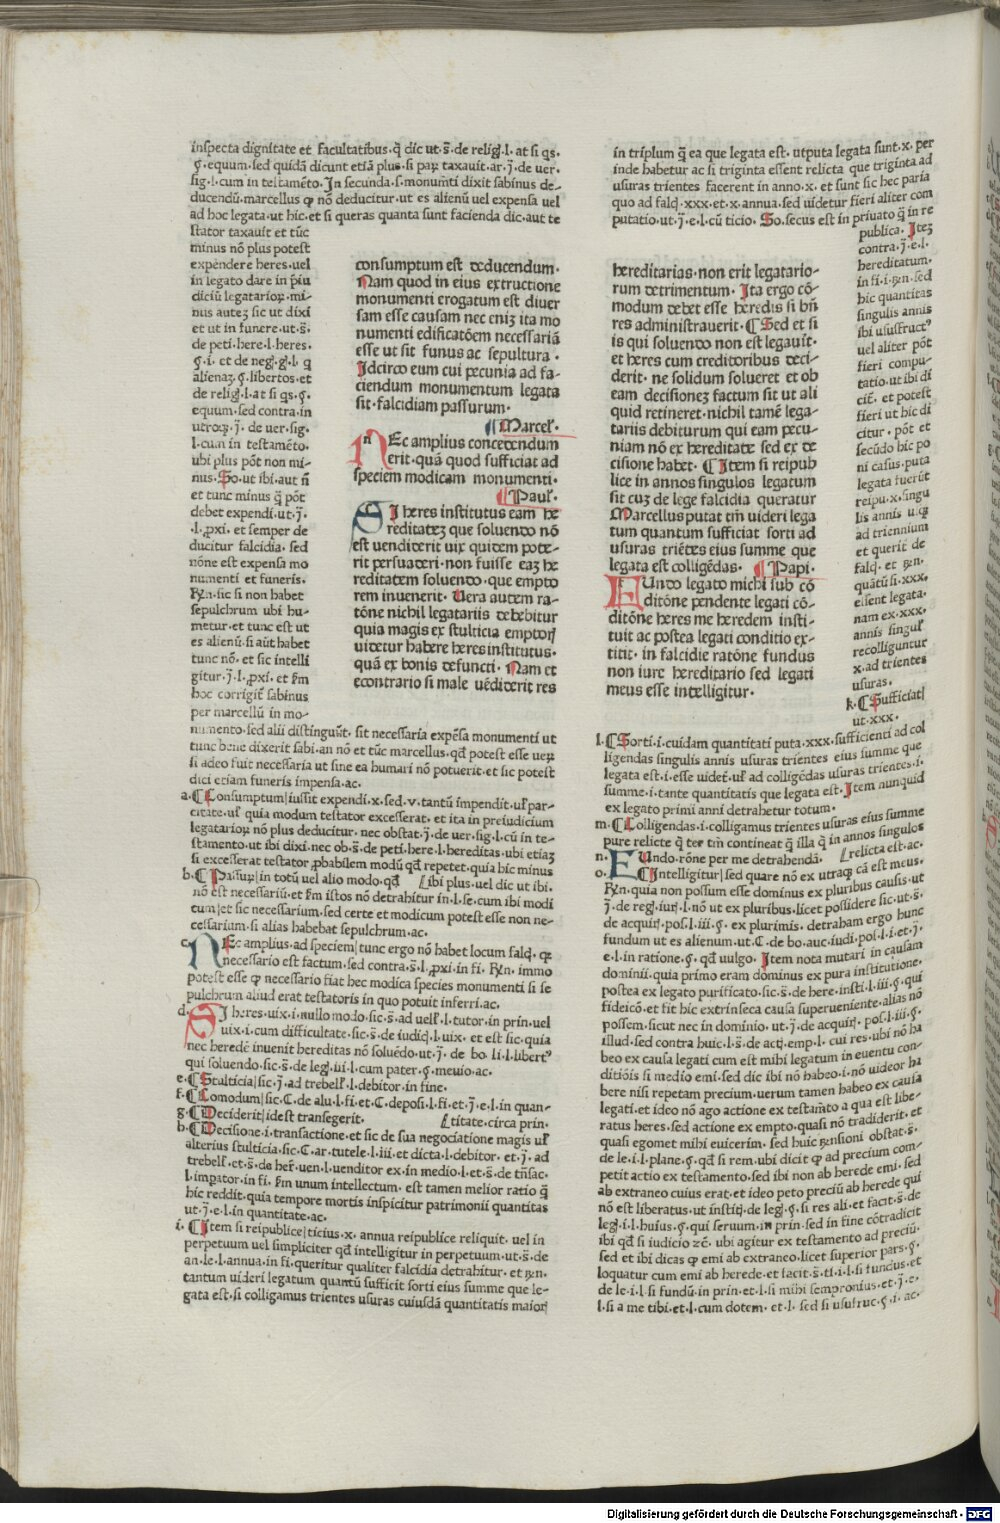 inspecta dignitate et facultatibus. q̄ dic ut. s̄. de relig̣. l. at si qs.
§. equum. sed quidā dicunt etiā plus. si par taxauit. ar. j̄. de uer.
sig. l. cum in testamēto. In secunda. s. monumēti dixit sabinus de-
ducendū. marcellus ꝙ nō deducitur. ut es alienū uel expensa uel
ad hoc legata. ut hic. et si queras quanta sunt facienda dic. aut te
stator taxauit et tūc
minus nō plus potest
expendere heres. uel
in legato dare in p̄iu
diciū legatarioꝝ. mi-
nus autez sic ut dixi
et ut in funere. ut. s̄.
de peti. here. l. heres.
§. i. et de neg̣. g̣. l. q
alienaz. §. libertos. et
de relig̣. l. at si qs. §.
equum. sed contra. in
utroq;. j̄. de uer. sig.
l. cum in testamēto.
ubi plus pōt non mi-
nus. So. ut ibi. aut n̄
et tunc minus q̄ pōt
debet expendi. ut. j̄.
l. ꝓxi. et semper de
ducitur falcidia. sed
nōne est expensa mo
numenti et funeris.
Rn̄. sic si non habet
sepulchrum ubi hu-
metur. et tunc est ut
es alienū. si aūt habet
tunc nō. et sic intelli
gitur. j̄. l. ꝓxi. et s̄m
hoc corrigit̄ sabinus
per marcellū in mo-
numento. sed alii distinguūt. sit necessaria expēsa monumenti ut
tunc bene dixerit sabi. an nō et tūc marcellus. qđ potest esse ueꝝ
si adeo fuit necessaria ut sine ea humari nō potuerit. et sic potest
dici etiam funeris impensa. ac.
a. ¶ Consumptum| iussit expendi. x. sed. v. tantū impendit. ul̄ par-
citate. ul̄ quia modum testator excesserat. et ita in preiudicium
legatarioꝝ nō plus deducitur. nec obstat. j̄. de uer. sig. l. cū in te-
stamento. ut ibi dixi. nec ob. s̄. de peti. here. l. hereditas. ubi etiaz
si excesserat testator ꝓbabilem modū qđ repetet. quia hic minus
b. ¶ Passuꝝ| in totū uel alio modo. qđ [ ibi plus. uel dic ut ibi.
nō est necessariū. et s̄m istos nō detrahitur in. l. se. cum ibi modi
cum| et sic necessarium. sed certe et modicum potest esse non ne-
cessarium. si alias habebat sepulchrum. ac.
c. NEc amplius. ad speciem| tunc ergo nō habet locum falc̣. ꝙ
necessario est factum. sed contra. s̄. l. ꝓxi. in fi. Rn̄. immo
potest esse ꝙ necessario fiat hec modica species monumenti si se
pulchrum aliud erat testatoris in quo potuit inferri. ac.
d. SI heres. uix. i. nullo modo. sic. s̄. ad uell̄. l. tutor. in prin. uel
uix. i. cum difficultate. sic. s̄. de iudic̣. l. uix. et est sic. quia
nec heredē inuenit hereditas nō soluēdo. ut. j̄. de bo. li. l. libert⁹
qui soluendo. sic. s̄. de leg̣. iii. l. cum pater. §. meuio. ac.
e. ¶ Stulticia| sic. j̄. ad trebell̄. l. debitor. in fine.
f. ¶ Comodum| sic. C. de alu. l. fi. et. C. deposi. l. fi. et. j̄. e. l. in quan-
g. ¶ Deciderit| idest transegerit. [ titate. circa prin.
h. ¶ Decisione. i. transactione. et sic de sua negociatione magis ul̄
alterius stulticia. sic. C. ar. tutele. l. iii. et dicta. l. debitor. et. j̄. ad
trebell̄. et. s̄. de her̄. uen. l. uenditor ex. in medio. l. et. s̄. de trāsac.
l. īpator. in fi. s̄m unum intellectum. est tamen melior ratio q̄
hic reddit. quia tempore mortis inspicitur patrimonii quantitas
ut. j̄. e. l. in quantitate. ac.
i. ¶ Item si reipublice| ticius. x. annua reipublice reliquit. uel in
perpetuum uel simpliciter qđ intelligitur in perpetuum. ut. s̄. de
an. le. l. annua. in fi. queritur qualiter falcidia detrahitur. et Rn̄.
tantum uideri legatum quantū sufficit sorti eius summe que le-
gata est. si colligamus trientes usuras cuiusdā quantitatis maior
consumptum est deducendum.
Nam quod in eius extructione
monumenti erogatum est diuer
sam esse causam nec eniz ita mo
numenti edificatōem necessariā
esse ut sit funus ac sepultura.
Idcirco eum cui pecunia ad fa-
ciendum monumentum legata
sit. falcidiam passurum.
¶ Marcel̄.
NEc amplius concedendum
erit. quā quod sufficiat ad
speciem modicam monumenti.
¶ Paul̄.
SI heres institutus eam he
reditatez que soluendo nō
est uendiderit uix quidem pote-
rit persuaderi. non fuisse eaz he
reditatem soluendo. que empto
rem inuenerit. Uera autem ra-
tōne nichil legatariis debebitur
quia magis ex stulticia emptorṣ
uidetur habere heres institutus.
quā ex bonis defuncti. Nam et
econtrario si male uēdiderit res
hereditarias. non erit legatario-
rum detrimentum. Ita ergo cō-
modum debet esse heredis si bn̄
res administrauerit. ¶ Sed et si
is qui soluendo non est legauit.
et heres cum creditoribus deci-
derit. ne solidum solueret et ob
eam decisionez factum sit ut ali
quid retineret. nichil tamē lega-
tariis debiturum qui eam pecu-
niam nō ex hereditate sed ex de
cisione habet. ¶ Item si reipub
lice in annos singulos legatum
sit cuz de lege falcidia queratur
Marcellus putat tm̄ uideri lega
tum quantum sufficiat sorti ad
usuras triētes eius summe que
legata est colligēdas. ¶ Papi.
FUndo legato michi sub cō
ditōne pendente legati cō-
ditōne heres me heredem insti-
tuit ac postea legati conditio ex-
titit. in falcidie ratōne fundus
non iure hereditario sed legati
meus esse intelligitur.
in triplum q̄ ea que legata est. utputa legata sunt. x. per
inde habetur ac si triginta essent relicta que triginta ad
usuras trientes facerent in anno. x. et sunt sic hec paria
quo ad falc̣. xxx. et x. annua. sed uidetur fieri aliter com
putatio. ut. j̄. e. l. cū ticio. So. secus est in priuato q̄ in re
publica. Itez
contra. j̄. e. l.
hereditatum.
in fi. i. Rn̄. sed
hic quantitas
singulis annis
ibi ususfruct⁹
uel aliter pōt
fieri compu-
tatio. ut ibi di
cit̄. et potest
fieri ut hic di
citur. pōt et
secūdo hic po
ni casus. puta
legata fuerūt
reipu. x. singu
lis annis usq;
ad triennium
et querit̄ de
falc̣. et Rn̄.
quātū si. xxx.
essent legata.
nam ex. xxx.
annis singul̄
recolliguntur
x. ad trientes
usuras.
k. ¶ Sufficiat|
ut. xxx.
l. ¶ Sorti. i. cuidam quantitati puta. xxx. sufficienti ad col
ligendas singulis annis usuras trientes eius summe que
legata est. i. esse uidet̄. ul̄ ad colligēdas usuras trientes. i.
summe. i. tante quantitatis que legata est. Item nunquid
ex legato primi anni detrahetur totum.
m. ¶ Colligendas. i. colligamus trientes usuras eius summe
pure relicte q̄ ter tm̄ contineat q̄ illa q̄ in annos singulos
n. FUndo. rōne per me detrahendā. [ relicta est. ac.
o. ¶ Intelligitur| sed quare nō ex utraq; cā est meus.
Rn̄. quia non possum esse dominus ex pluribus causis. ut
j̄. de reg̣. iuṛ. l. nō ut ex pluribus. licet possidere sic. ut. s̄.
de acquiṛ. pos. l. iii. §. ex plurimis. detraham ergo hunc
fundum ut es alienum. ut. C. de bo. auc. iudi. pos. l. i. et. j̄.
e. l. in ratione. §. qđ uulgo. Item nota mutari in causam
dominii. quia primo eram dominus ex pura institutione.
postea ex legato purificato. sic. s̄. de here. insti. l. iii. §. qui
fideicō. et fit hic extrinseca causa superueniente. alias nō
possem. sicut nec in dominio. ut. j̄. de acquiṛ. pos. l. iii. §.
illud. sed contra huic. l. s̄. de acṭ. emp. l. cui res. ubi nō ha
beo ex causa legati cum est mihi legatum in euentu con-
ditiōis si medio emi. sed dic ibi nō habeo. i. nō uideor ha
bere nisi repetam precium. uerum tamen habeo ex causa
legati. et ideo nō ago actione ex testam̄to a qua est libe-
ratus heres. sed actione ex empto. quasi nō tradiderit. et
quasi egomet mihi euicerim. sed huic Rn̄sioni obstat. s̄.
de le. i. l. plane. §. qđ si rem. ubi dicit ꝙ ad precium com-
petit actio ex testamento. sed ibi non ab herede emi. sed
ab extraneo cuius erat. et ideo peto preciū ab herede qui
nō est liberatus. ut instiṭ. de leg̣. §. si res ali. et facit. s̄. de
leg̣. i. l. huius. §. qui seruum. in prin. sed in fine cōtradicit
ibi qđ si iudicio ꝛc̄. ubi agitur ex testamento ad preciū.
sed et ibi dicas ꝙ emi ab extraneo. licet superior pars. §.
loquatur cum emi ab herede. et facit. s̄. ti. i. l. si fundus. et
de le. i. l. si fundū. in prin. et. l. si mihi sempronius. et. j̄. e.
l. si a me tibi. et. l. cum dotem. et. l. sed si usufruc. §. i. ac.
Digitalisierung gefördert durch die Deutsche Forschungsgemeinschaft - DFG